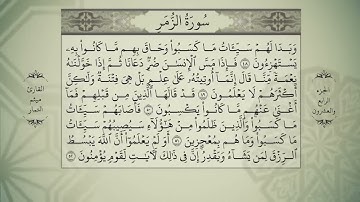 سُورَةُ الزُّمَرِ
وَبَدَا لَهُمْ سَيِّئَاتُ مَا كَسَبُوا۟ وَحَاقَ بِهِم مَّا كَانُوا۟ بِهِۦ
يَسْتَهْزِءُونَ ٤٨ فَإِذَا مَسَّ ٱلْإِنسَٰنَ ضُرٌّ دَعَانَا ثُمَّ إِذَا خَوَّلْنَٰهُ
نِعْمَةً مِّنَّا قَالَ إِنَّمَآ أُوتِيتُهُۥ عَلَىٰ عِلْمٍۭ بَلْ هِىَ فِتْنَةٌ وَلَٰكِنَّ
أَكْثَرَهُمْ لَا يَعْلَمُونَ ٤٩ قَدْ قَالَهَا ٱلَّذِينَ مِن قَبْلِهِمْ فَمَآ
أَغْنَىٰ عَنْهُم مَّا كَانُوا۟ يَكْسِبُونَ ٥٠ فَأَصَابَهُمْ سَيِّئَاتُ
مَا كَسَبُوا۟ وَٱلَّذِينَ ظَلَمُوا۟ مِنْ هَٰٓؤُلَآءِ سَيُصِيبُهُمْ سَيِّئَاتُ
مَا كَسَبُوا۟ وَمَا هُم بِمُعْجِزِينَ ٥١ أَوَلَمْ يَعْلَمُوٓا۟ أَنَّ ٱللَّهَ يَبْسُطُ
ٱلرِّزْقَ لِمَن يَشَآءُ وَيَقْدِرُ إِنَّ فِى ذَٰلِكَ لَءَايَٰتٍ لِّقَوْمٍ يُؤْمِنُونَ ٥٢
الجزء
الرابع
والعشرون
القارئ
ميثم
التمار